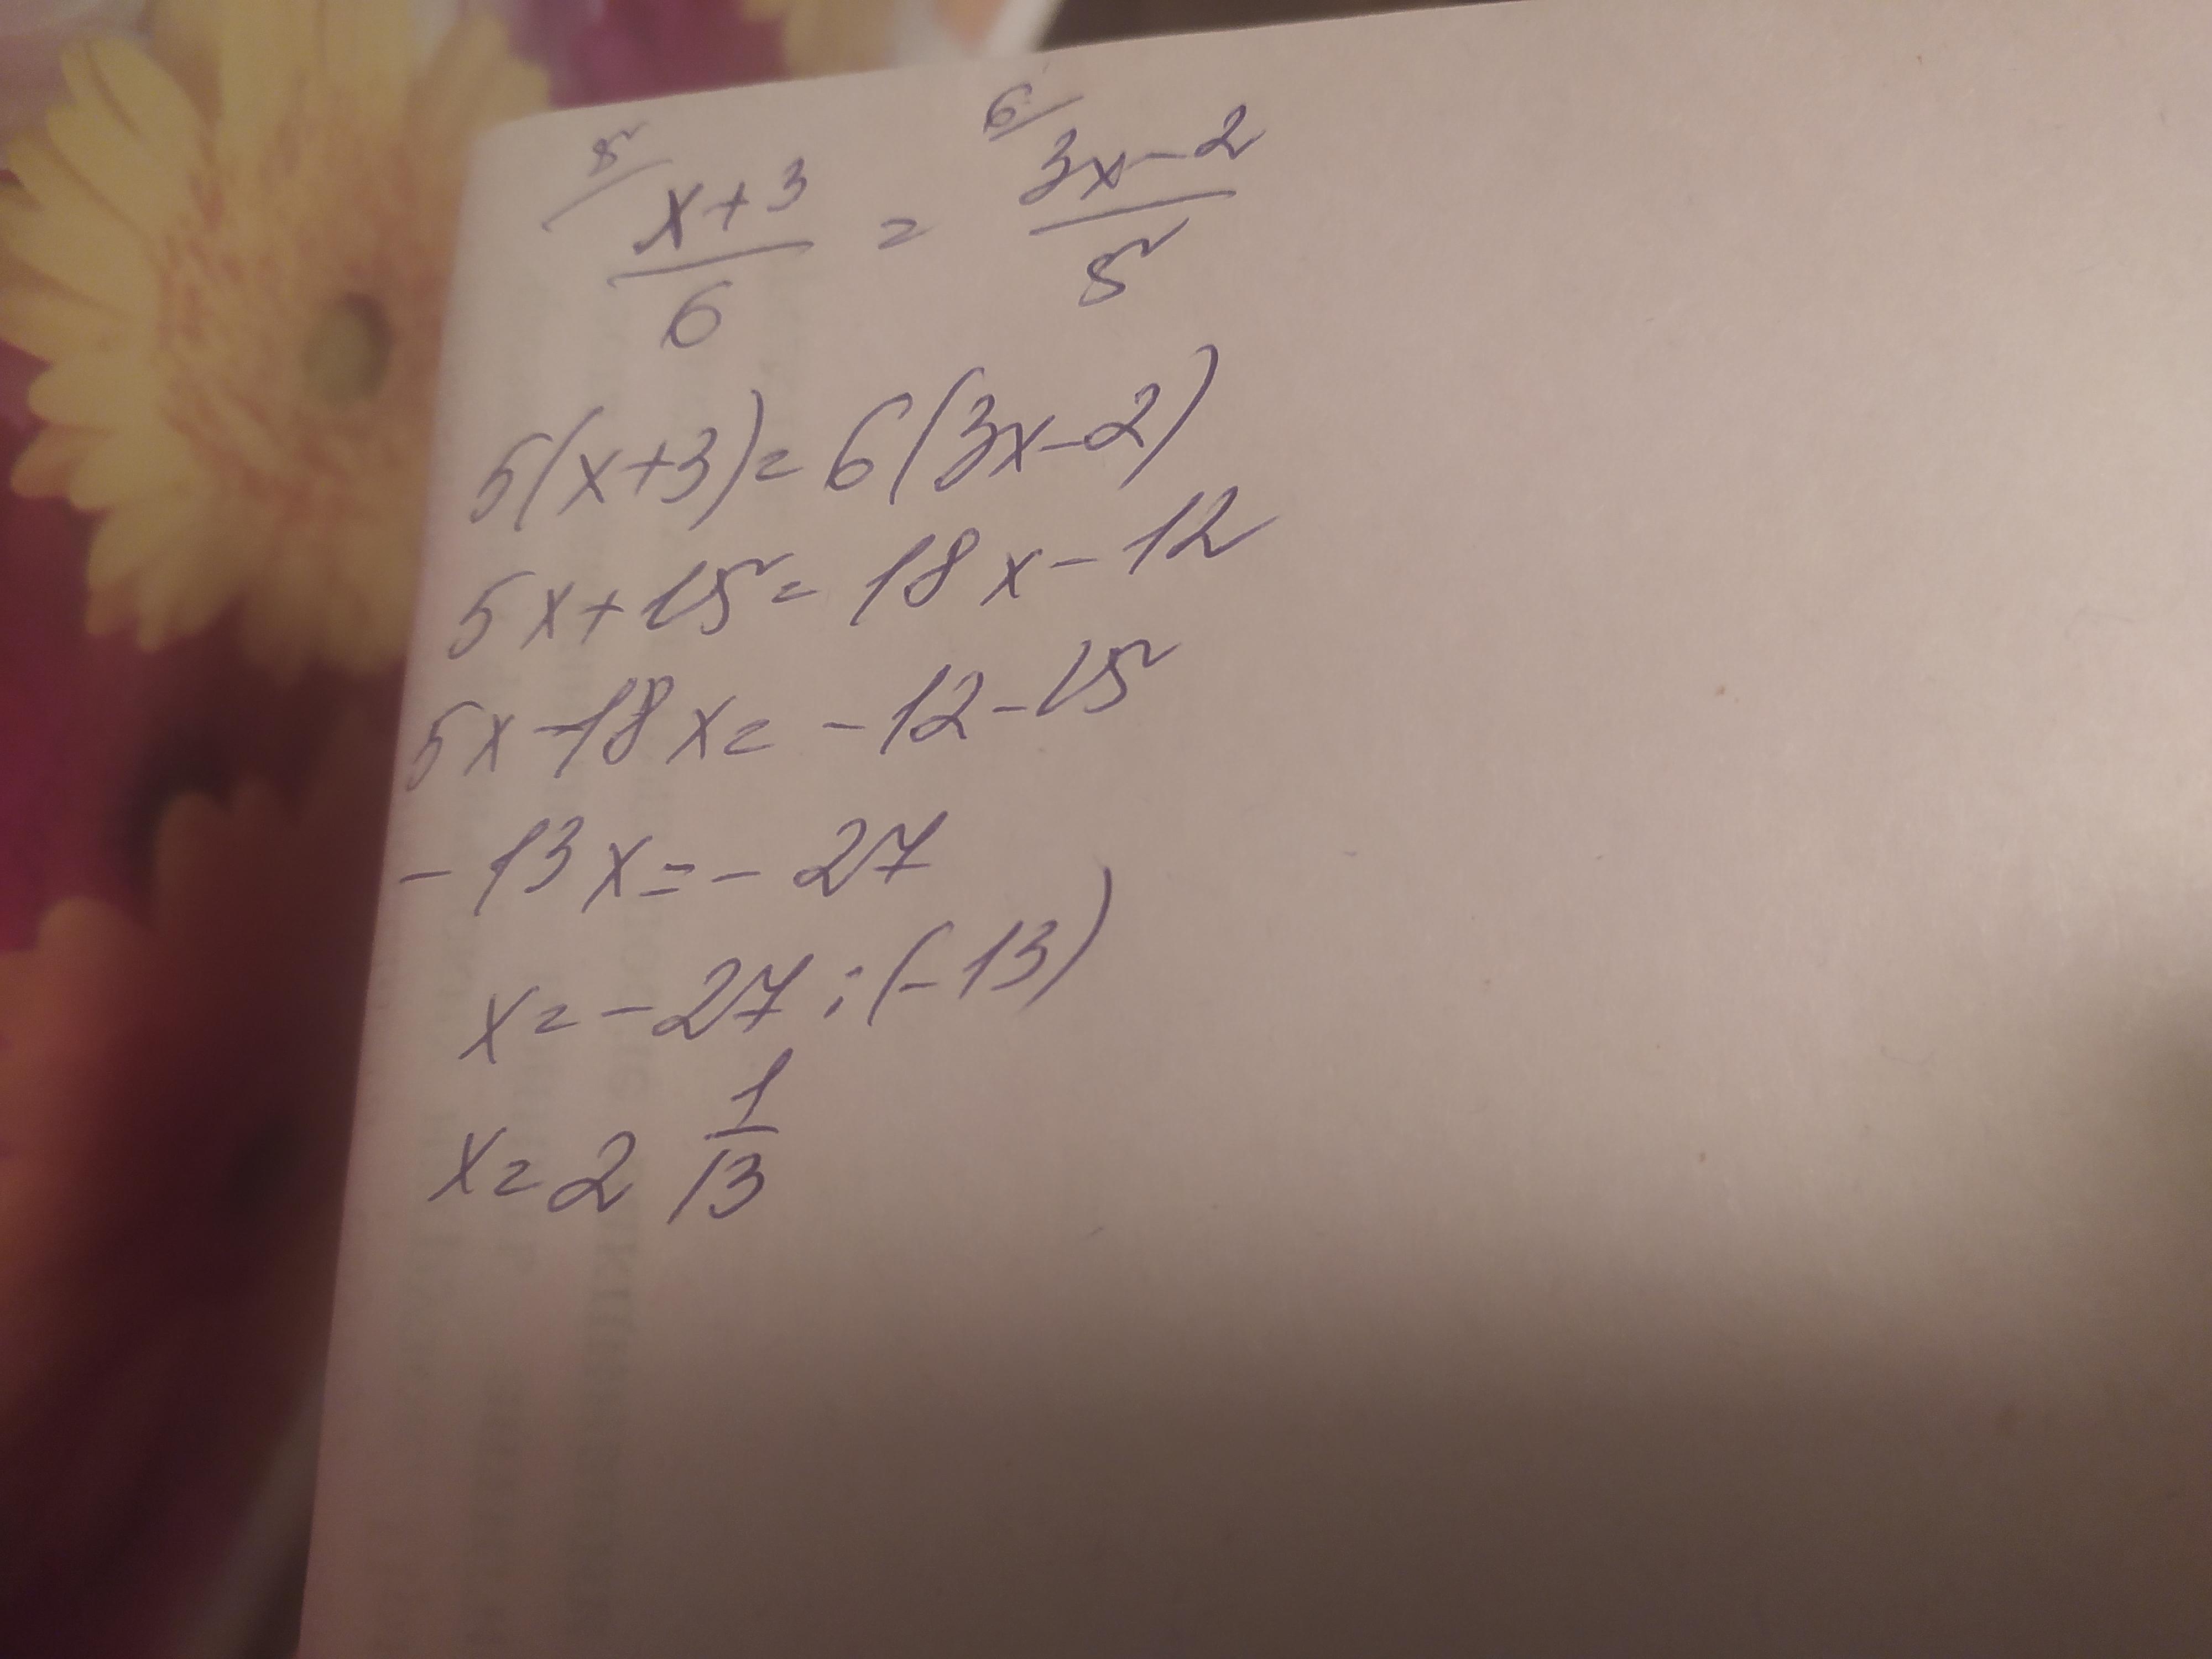 5/ (x+3)/6 = 6/ (3x-2)/5
5(x+3)=6(3x-2)
5x+15=18x-12
5x-18x=-12-15
-13x=-27
x=-27:(-13)
x=2 1/13